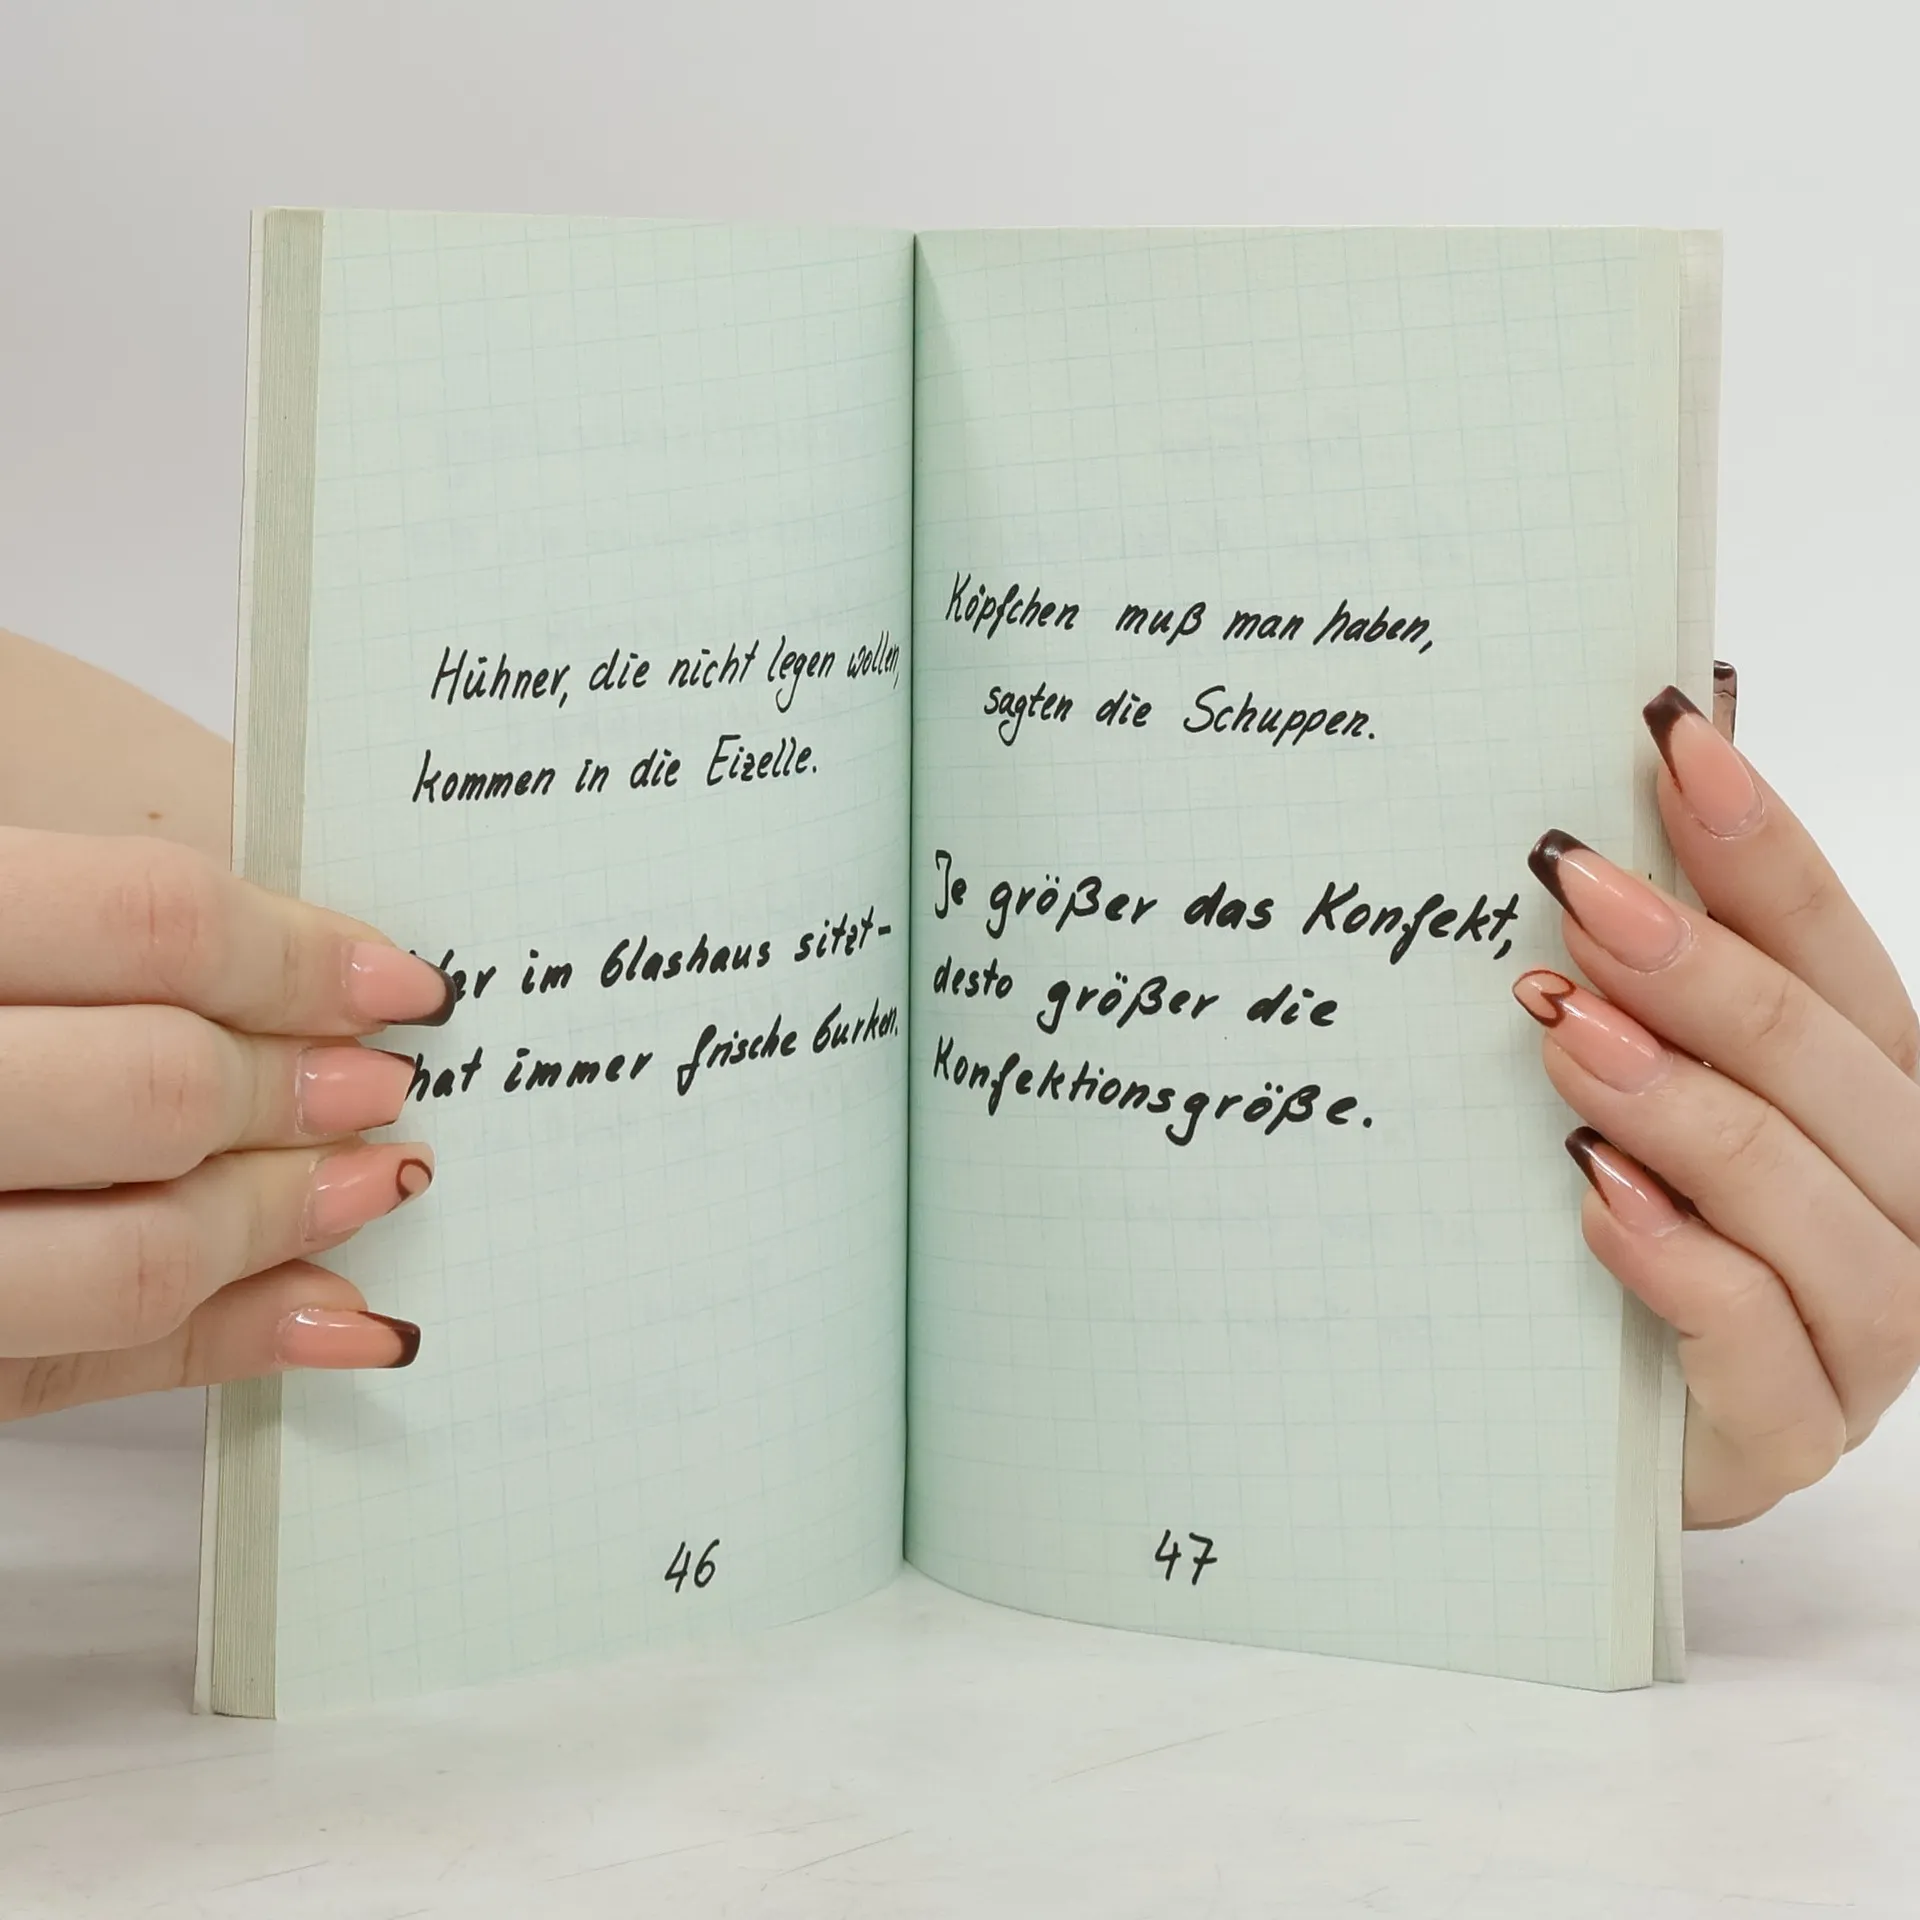 Hühner, die nicht legen wollen,
kommen in die Eizelle.
im Glashaus sitzt-
hat immer frische Gurken.
46
Köpfchen muß man haben,
sagten die Schuppen.
Je größer das Konfekt,
desto größer die
Konfektionsgröße.
47